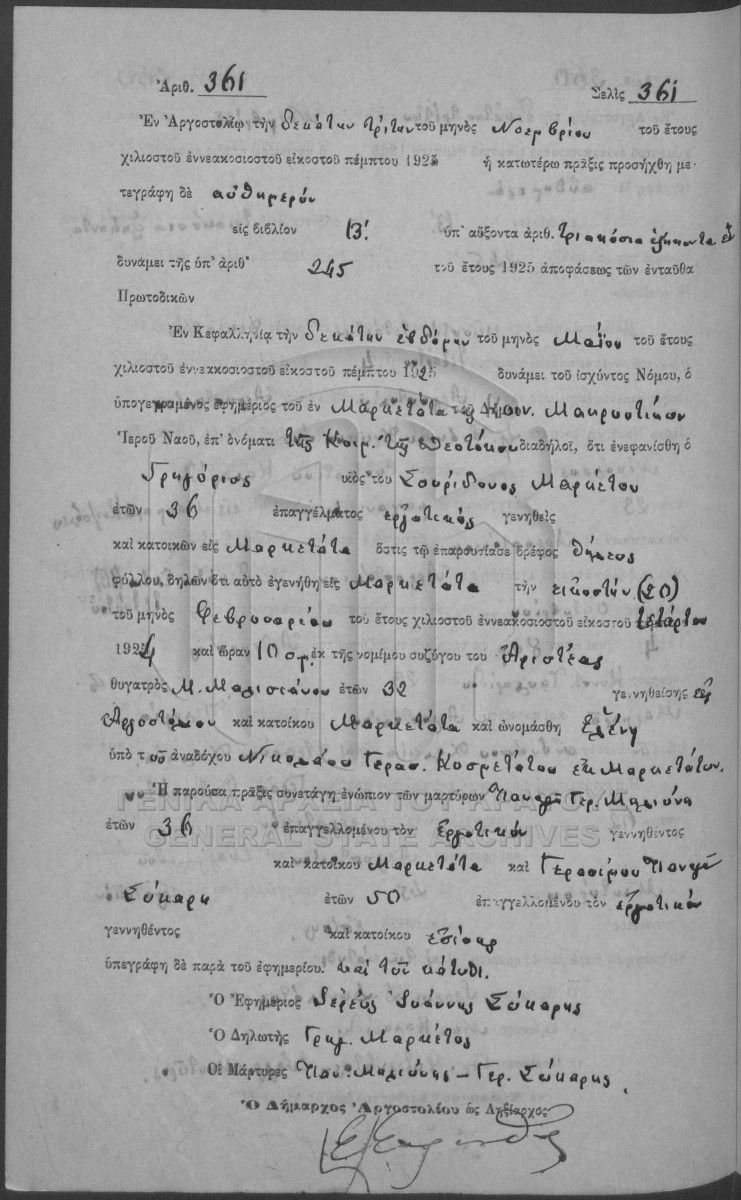 Ἀριθ. 361 Σελὶς 361
Ἐν Ἀργοστολίῳ τὴν δεκάτην τρίτην τοῦ μηνὸς Νοεμβρίου τοῦ ἔτους
χιλιοστοῦ ἐννεακοσιοστοῦ εἰκοστοῦ πέμπτου 1925 ἡ κατωτέρω πρᾶξις προσήχθη με-
τεγράφη δὲ αὐθημερόν
εἰς βιβλίον Β΄. ὑπ' αὔξοντα ἀριθ. τριακόσια ἑξήκοντα ἕν
δυνάμει τῆς ὑπ' ἀριθ' 245 τοῦ ἔτους 1925 ἀποφάσεως τῶν ἐνταῦθα
Πρωτοδικῶν
Ἐν Κεφαλληνίᾳ τὴν δεκάτην ἑβδόμην τοῦ μηνὸς Μαΐου τοῦ ἔτους
χιλιοστοῦ ἐννεακοσιοστοῦ εἰκοστοῦ πέμπτου 1925 δυνάμει τοῦ ἰσχύντος Νόμου, ὁ
ὑπογεγραμένος ἐφημέριος τοῦ ἐν Μαρκετάτα τοῦ Δήμου
Ἱεροῦ Ναοῦ, ἐπ' ὀνόματι τῆς Κοιμ. τῆς Θεοτόκου διαδηλοῖ, ὅτι ἐνεφανίσθη ὁ
Γρηγόριος υἱὸς του Σπυρίδωνος Μαρκέτου
ἐτῶν 36 ἐπαγγέλματος ἐργατικός γεννηθεὶς
καὶ κατοικῶν εἰς Μαρκετάτα ὅστις τῷ ἐπαρουσίασε βρέφος θήλεος
φύλλου, δηλῶν ὅτι αὐτὸ ἐγενήθη εἰς Μαρκετάτα τὴν εἰκοστήν (20)
τοῦ μηνὸς Φεβρουαρίου τοῦ ἔτους χιλιοστοῦ ἐννεακοσιοστοῦ εἰκοστοῦ τετάρτου
1924 καὶ ὥραν 10 ἐκ τῆς νομίμου συζύγου του Ἀριστέας
θυγατρὸς Μ. ἐτῶν 32 γεννηθείσης εἰς
Ἀργοστόλιον καὶ κατοίκου Μαρκετάτα καὶ ὠνομάσθη Ἑλένη
ὑπὸ τοῦ ἀναδόχου Νικολάου Γερασ. Κοσμετάτου ἐκ Μαρκετάτων.
Ἡ παροῦσα πρᾶξις συνετάγη ἐνώπιον τῶν μαρτύρων Παναγῆ Γερ.
ΓΕΝΙΚΑ ΑΡΧΕΙΑ ΤΟΥ ΚΡΑΤΟΥΣ
GENERAL STATE ARCHIVES
ἐτῶν 36 ἐπαγγελλομένου τὸν ἐργατικόν γεννηθέντος
καὶ κατοίκου Μαρκετάτα καὶ Γερασίμου Παναγῆ
Σόκαρη ἐτῶν 50 ἐπαγγελλομένου τὸν ἐργατικόν
γεννηθέντος καὶ κατοίκου ἐπίσης
ὑπεγράφη δὲ παρὰ τοῦ ἐφημερίου. καὶ
Ὁ Ἐφημέριος Ἱερεύς Ἰωάννης Σόκαρης
Ὁ Δηλωτὴς Γρηγ. Μαρκέτος
Οἱ Μάρτυρες Παν. – Γερ. Σόκαρης
Ὁ Δήμαρχος Ἀργοστολίου ὡς Ληξίαρχος